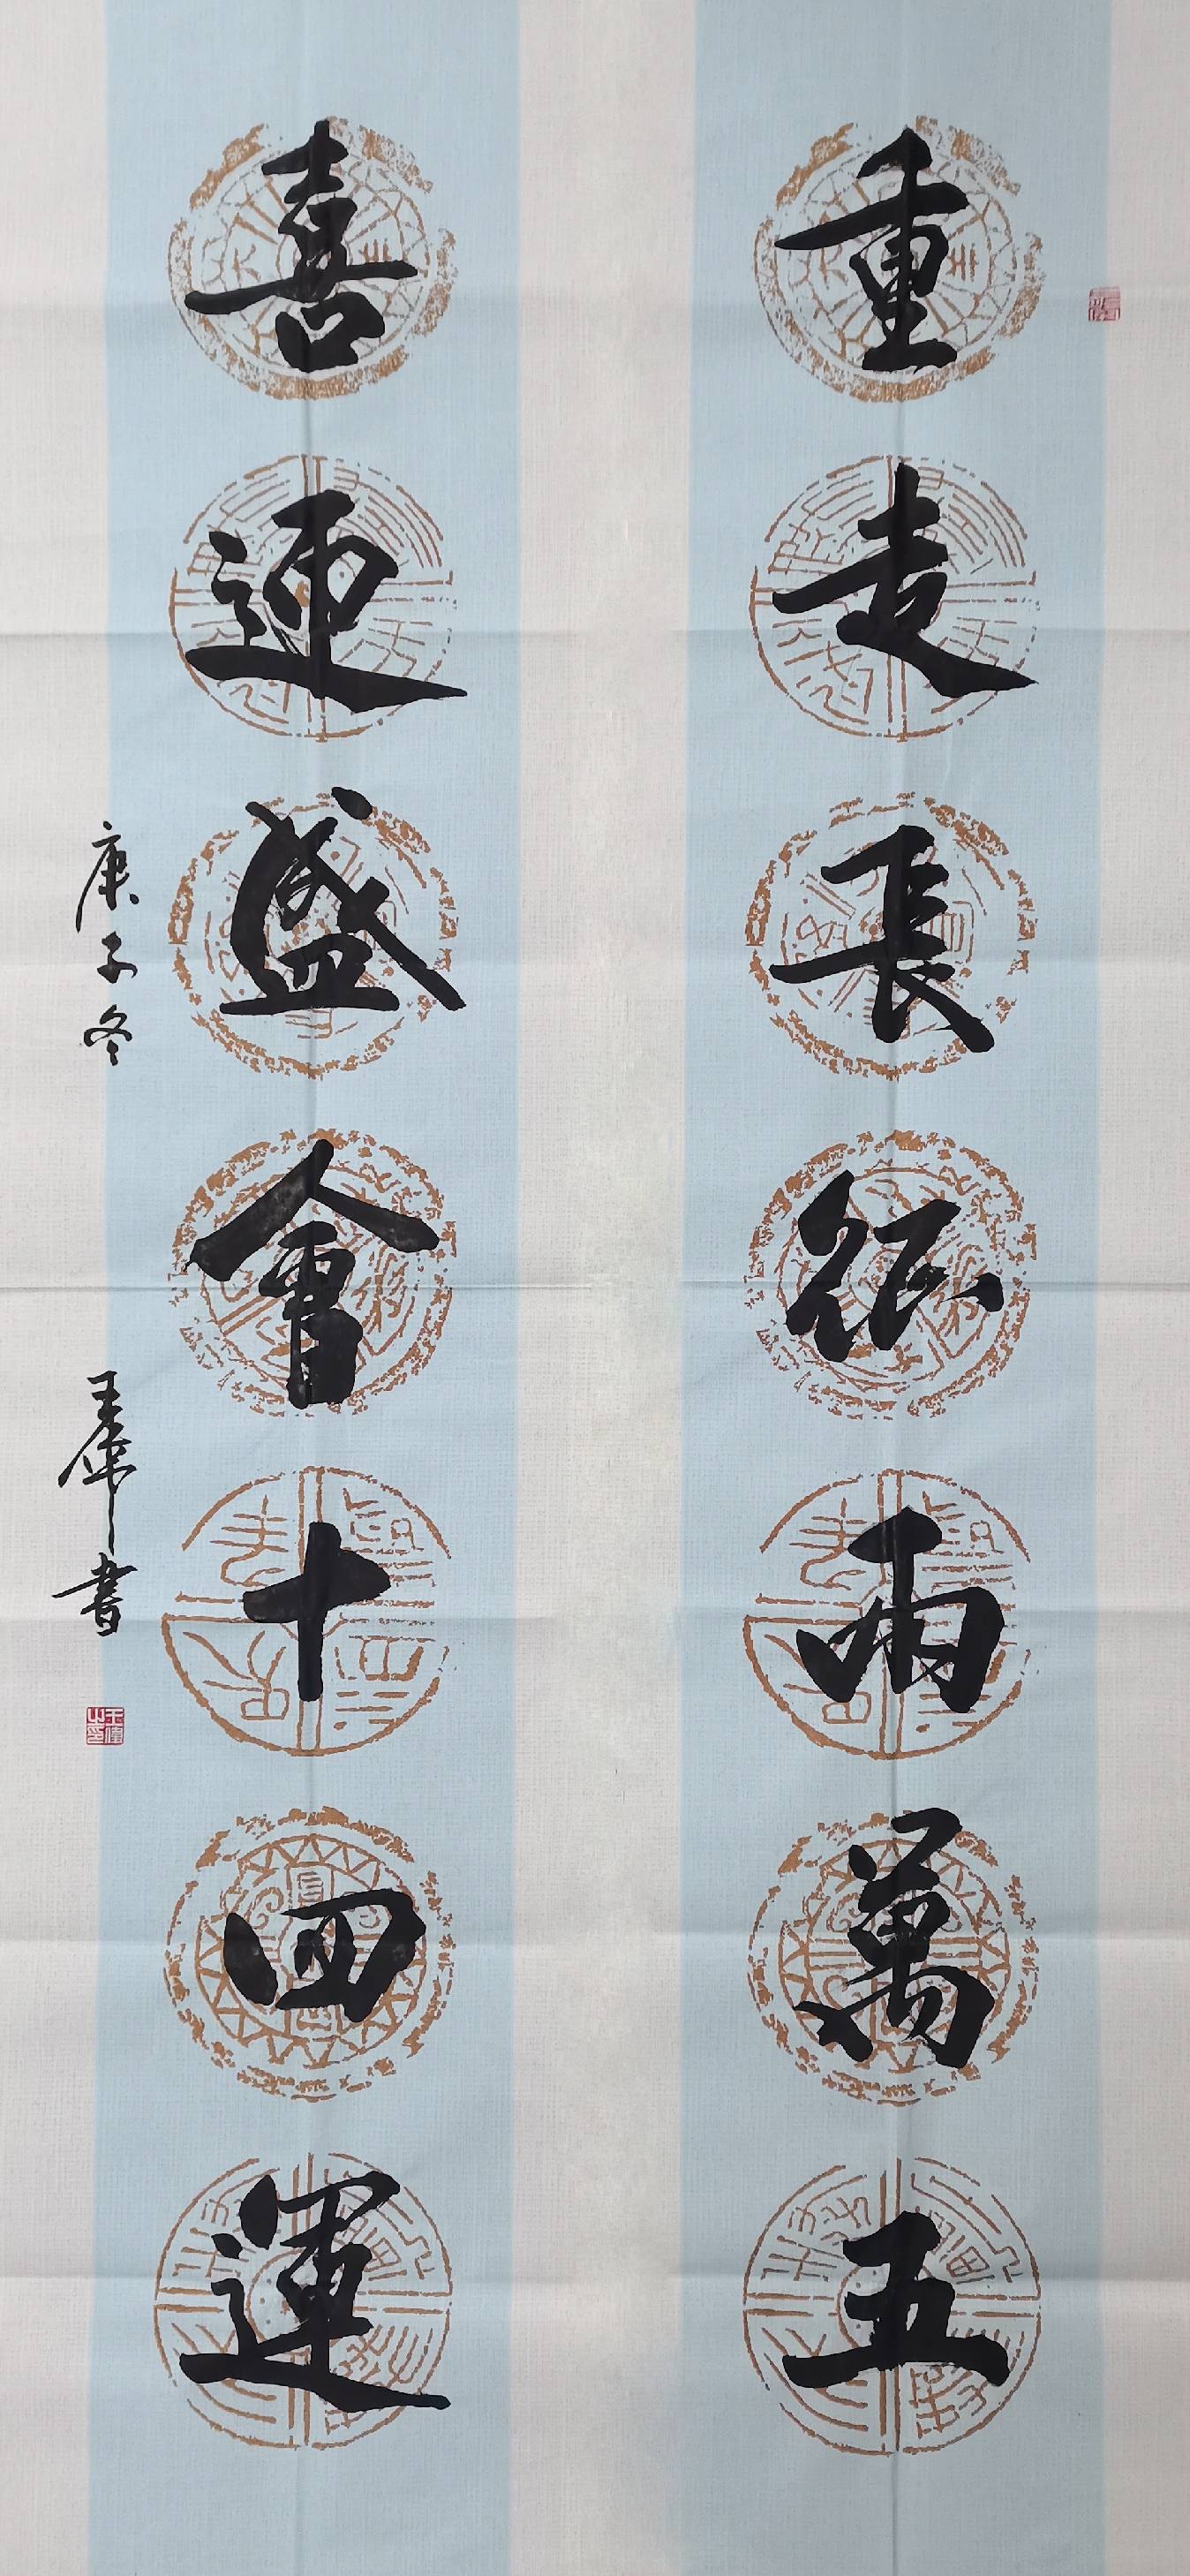 重走長征兩萬五
喜迎盛會十四運
庚子冬
王
書